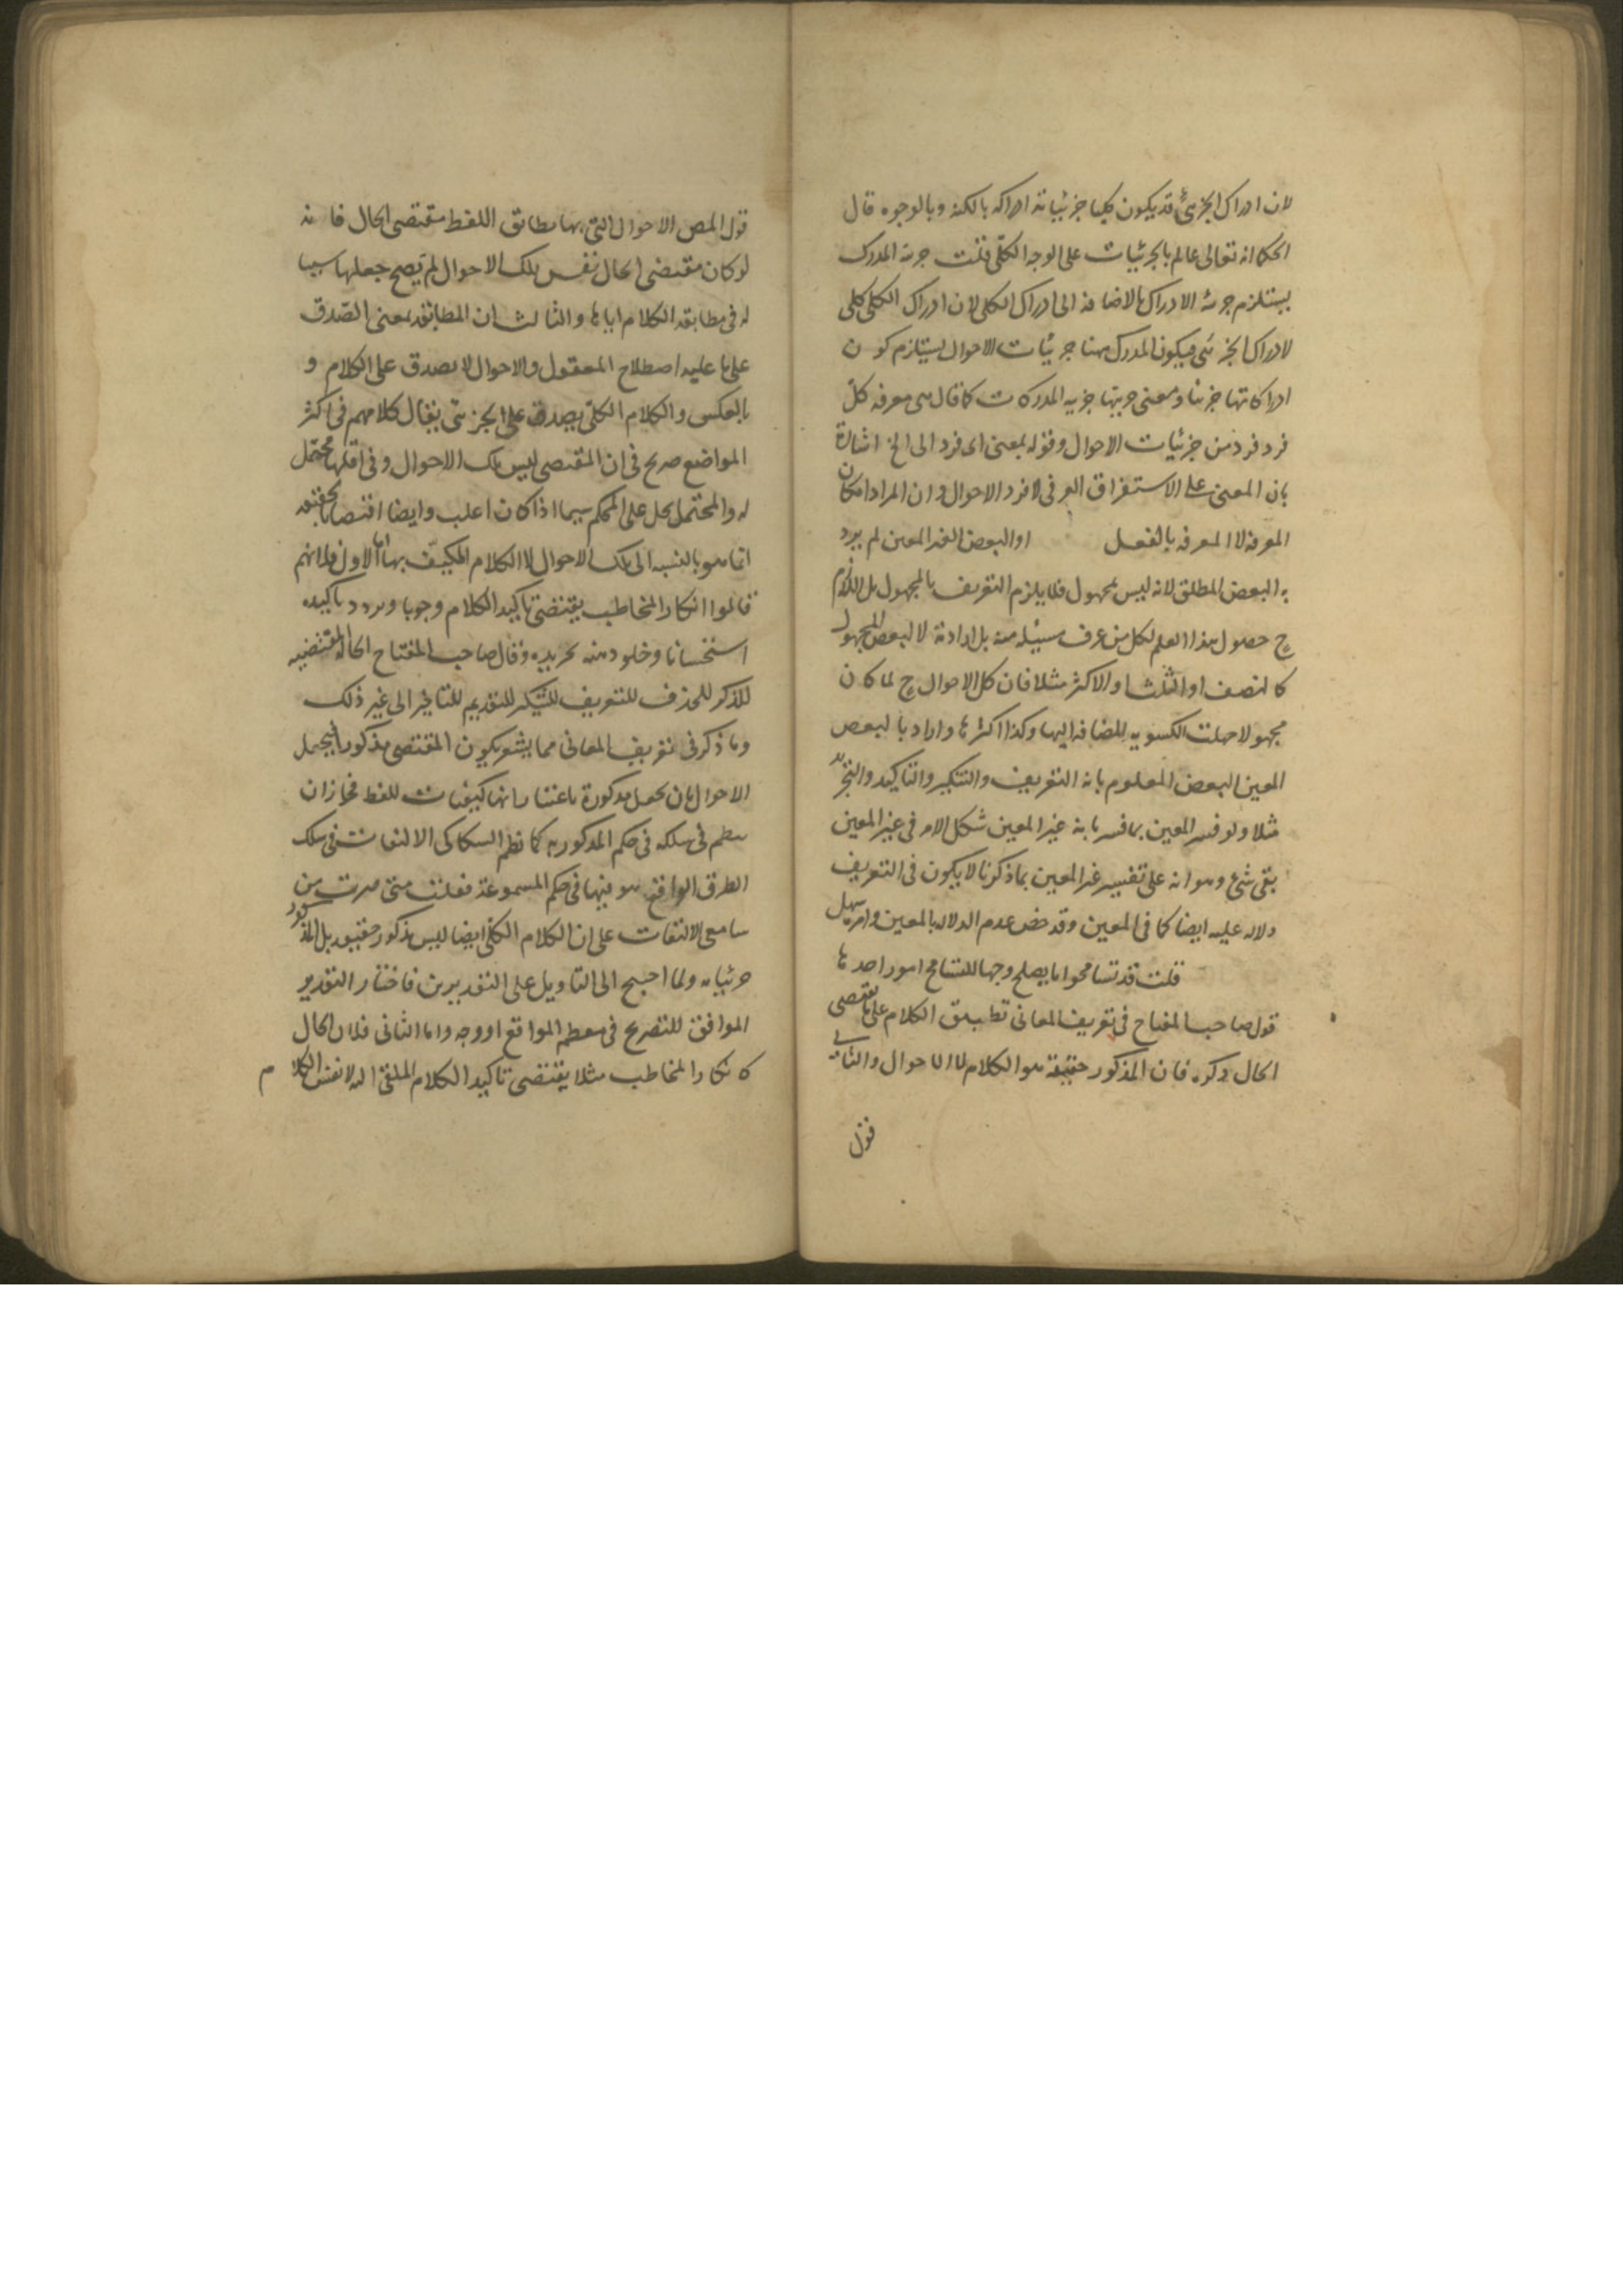 لان ادراك الجزئى قد يكون كليا جزئياته ادراكه بالكنه وبالوجوه قال
الحكما انه تعالى عالم بالجزئيات على الوجه الكلى قلت جزئية المدرك
يستلزم جزئية الادراك بالاضافة الى ادراك الكلى لان ادراك الكلى كلى
لادراك الجزئى فيكون المدرك هنا جزئيات الاحوال يستلزم كون
ادراكاتها جزئيا ومعنى جزئيتها جزئيه المدركات كما قال هى معرفه كل
فرد فرد من جزئيات الاحوال وقوله بمعنى اى فرد الى الخ اشارة
بان المعنى على الاستغراق العرفى لافراد الاحوال وان المراد امكان
المعرفه لا المعرفه بالفعل او البعض الغير المعين لم يرد
به البعض المطلق لانه ليس بمجهول فلا يلزم التعريف بالمجهول بل اللازم
ح حصول هذا العلم لكل من عرف مسئلة منه بل اراد به لا البعض المجهول
كالنصف او الثلث او الاكثر مثلا فان كل الاحوال ح لما كان
مجهولا جهلت الكسور المضافه اليها وكذا اكثرها واراد بالبعض
المعين البعض المعلوم بانه التعريف والتنكير والتاكيد والتجريد
مثلا ولو فسر المعين بما فسرنا به غير المعين شكل الامر فى غير المعين
بقى شئ وهو انه على تفسير غير المعين بما ذكرنا لا يكون فى التعريف
دلاله عليه ايضا كما فى المعين وقد خص عدم الدلاله بالمعين وامره سهل
قلت قد تسامحوا ما يصلح وجها للتسامح امور احدها
قول صاحب المفتاح فى تعريف المعانى تطبيق الكلام على ما يقتضى
الحال ذكره فان المذكور حقيقة هو الكلام لا الاحوال والثانى
قول
قول المص الاحوال التى بها يطابق اللفظ مقتضى الحال فانه
لو كان مقتضى الحال نفس تلك الاحوال لم يصح جعلها سببا
له فى مطابقه الكلام اياها والثالث ان المطابقه بمعنى الصدق
على ما عليه اصطلاح المعقول والاحوال لا يصدق على الكلام و
بالعكس والكلام الكلى يصدق على الجزئى يقال كلامهم فى اكثر
المواضع صريح فى ان المقتضى ليس تلك الاحوال وفى اقلها محتمل
له والمحتمل يحمل على المحكم سيما اذا كان اغلب وايضا اقتضا الحقيقه
انما هو بالنسبه الى تلك الاحوال لا الكلام المكيف بها اما الاول فلانهم
قالوا انكار المخاطب يقتضى تاكيد الكلام وجوبا وتردده تاكيده
استحسانا وخلو ذهنه تجريده وقال صاحب المفتاح الحاله المقتضيه
للذكر للحذف للتعريف للتنكير للتقديم للتاخير الى غير ذلك
وما ذكر فى تعريف المعانى مما يشعر بكون المقتضى مذكورا فيحمل
الاحوال بان يجعل مذكورة باعتبار انها كيفيات للفظ فجاز ان
ينظم فى سلكه فى حكم المذكوريه كما نظم السكاكى الالتفات فى سلك
الطرق الواقع هو فيها فى حكم المسموعة فقلت متى صرت من
سامعى الالتفات على ان الكلام الكلى ايضا ليس مذكور حقيقه بل المذكور
جزئياته ولما احتيج الى التاويل على التقديرين فاختار التقدير
الموافق للتصريح فى معظم المواقع اوجه واما الثانى فلان الحال
كانكار المخاطب مثلا يقتضى تاكيد الكلام الملقى اليه لا نفس الكلام